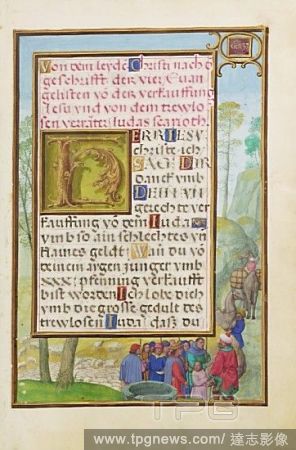 Von dem leyde Christi nach d
geschrifft der vier Euan
gelisten vō der verkauffung
Jesu vnd von dem trewlo
sen verräter Judas scarioth.
HERR IESV
christe ich
SAG DIR
danck vmb
DEIN VN
gerechte ver
kauffung vō dem Juda
vmb so ain schlechtes vn
klaines geldt Wan du vō
deinem argen junger vmb
xxx pfenning verkaufft
bist worden Ich lobe dich
vmb die grosse gedult des
trewlosen Juda das du
TPG
www.tpgnews.com / 達志影像